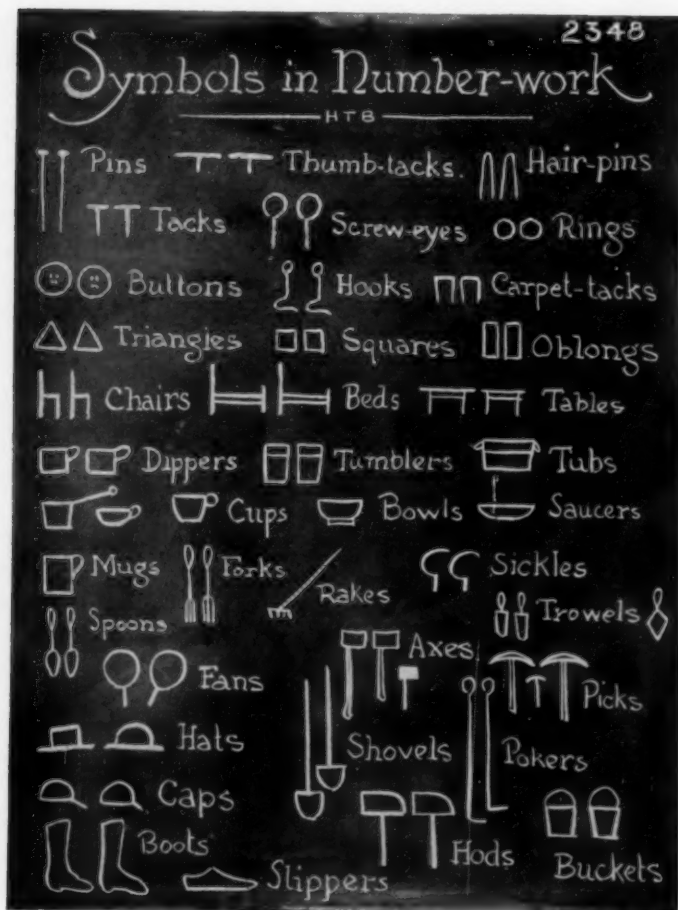 2348
Symbols in Number-work
HTB
Pins Thumb-tacks. Hair-pins
Tacks Screw-eyes Rings
Buttons Hooks Carpet-tacks
Triangles Squares Oblongs
Chairs Beds Tables
Dippers Tumblers Tubs
Cups Bowls Saucers
Mugs Forks Rakes Sickles
Spoons Trowels
Fans Axes Picks
Hats Shovels Pokers
Caps
Boots Hods Buckets
Slippers